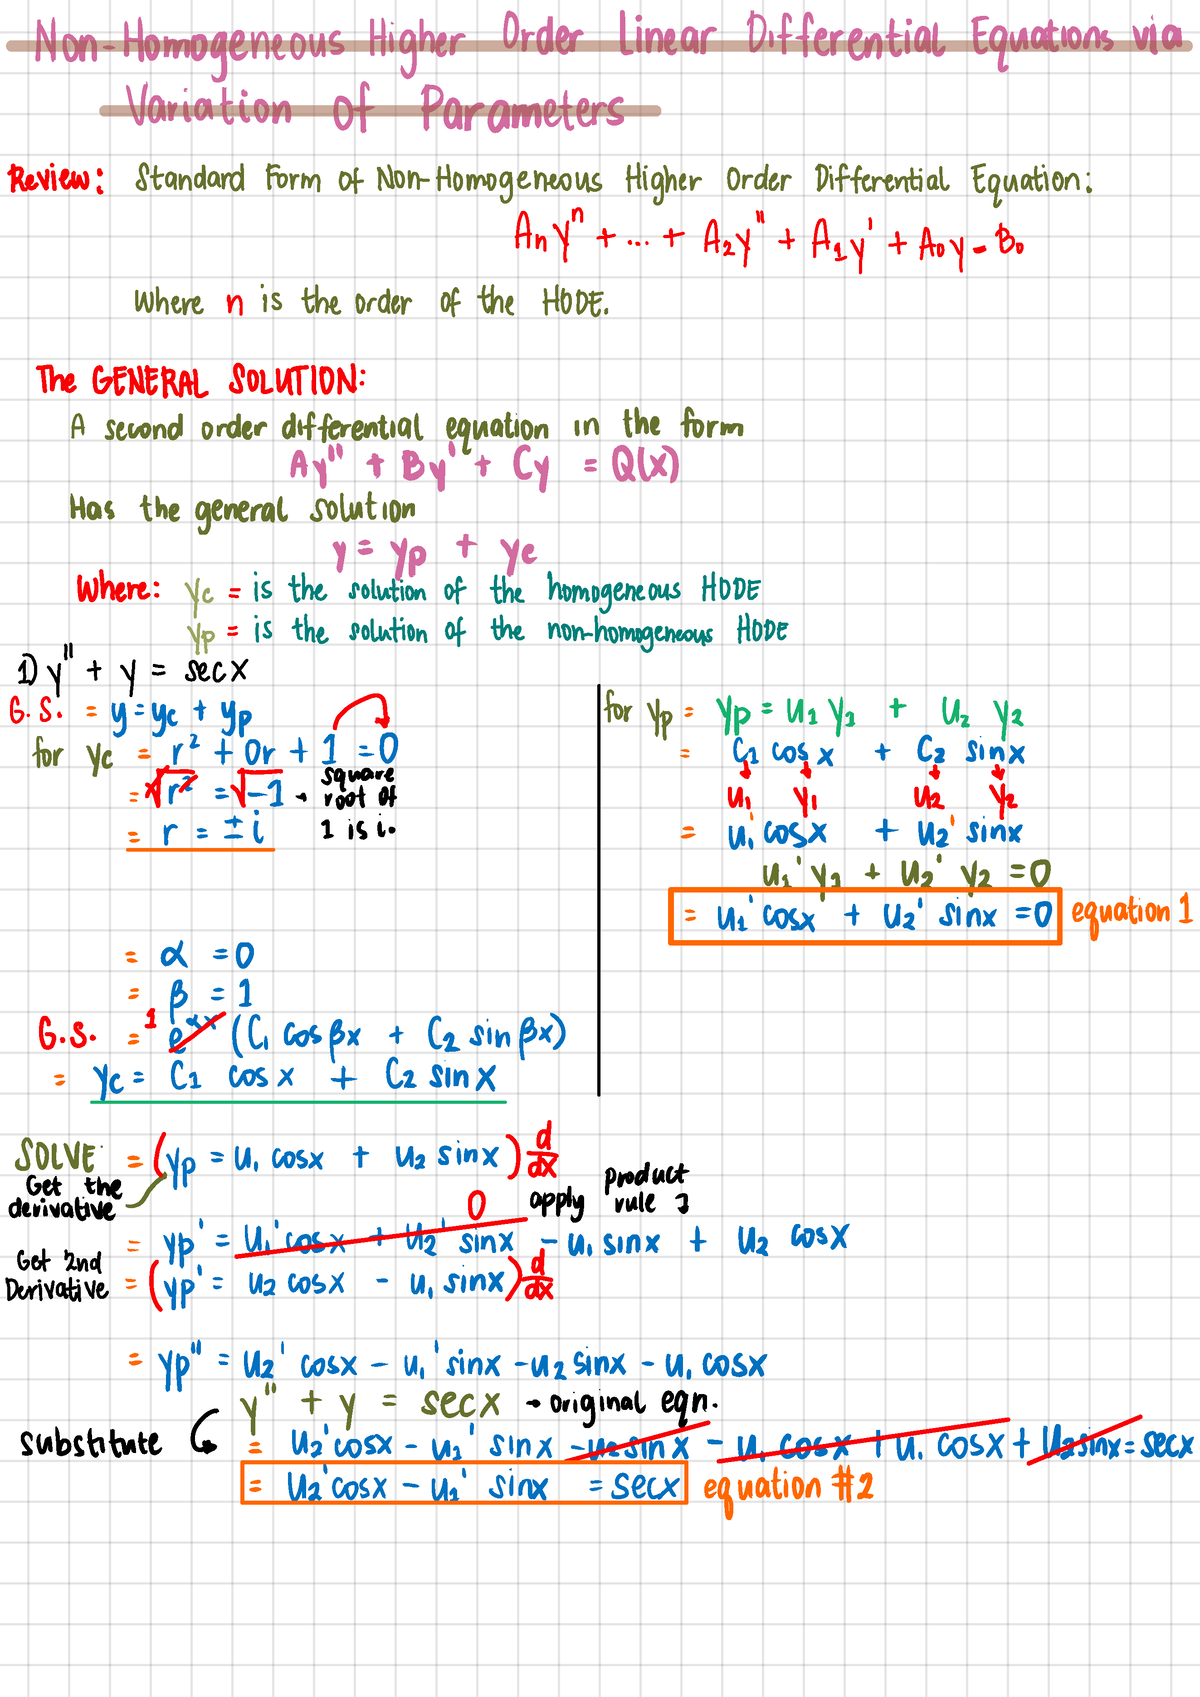 Non-Homogeneous Higher Order Linear Differential Equations via
Variation of Parameters
Review: Standard Form of Non-Homogeneous Higher Order Differential Equation:
Aₙyⁿ + ... + A₂y'' + A₁y' + A₀y = B₀
Where n is the order of the HODE.
The GENERAL SOLUTION:
A second order differential equation in the form
Ay'' + By' + Cy = Q(x)
Has the general solution
y = yp + yc
Where: yc = is the solution of the homogeneous HODE
yp = is the solution of the non-homogeneous HODE
1) y'' + y = secx
G.S. = y = yc + yp
for yc = r² + 0r + 1 = 0
= √r² = √-1 → square root of 1 is i.
= r = ± i
= α = 0
= β = 1
G.S. = e^αx 1 (C₁ cos βx + C₂ sin βx)
= yc = C₁ cos x + C₂ sin x
for yp = yp = u₁ y₁ + u₂ y₂
= C₁ cos x + C₂ sin x
u₁ y₁ u₂ y₂
= u₁' cosx + u₂' sinx
u₁' y₁ + u₂' y₂ = 0
= u₁' cosx + u₂' sinx = 0 equation 1
SOLVE = (yp = u₁ cosx + u₂ sinx) d/dx
Get the derivative
0 apply product rule
= yp' = u₁' cosx + u₂' sinx - u₁ sinx + u₂ cosx
Get 2nd Derivative = (yp' = u₂ cosx - u₁ sinx) d/dx
= yp'' = u₂' cosx - u₁' sinx - u₂ sinx - u₁ cosx
y'' + y = secx → original eqn.
substitute = u₂' cosx - u₁' sinx - u₂ sinx - u₁ cosx + u₁ cosx + u₂ sinx = secx
= u₂' cosx - u₁' sinx = secx equation #2